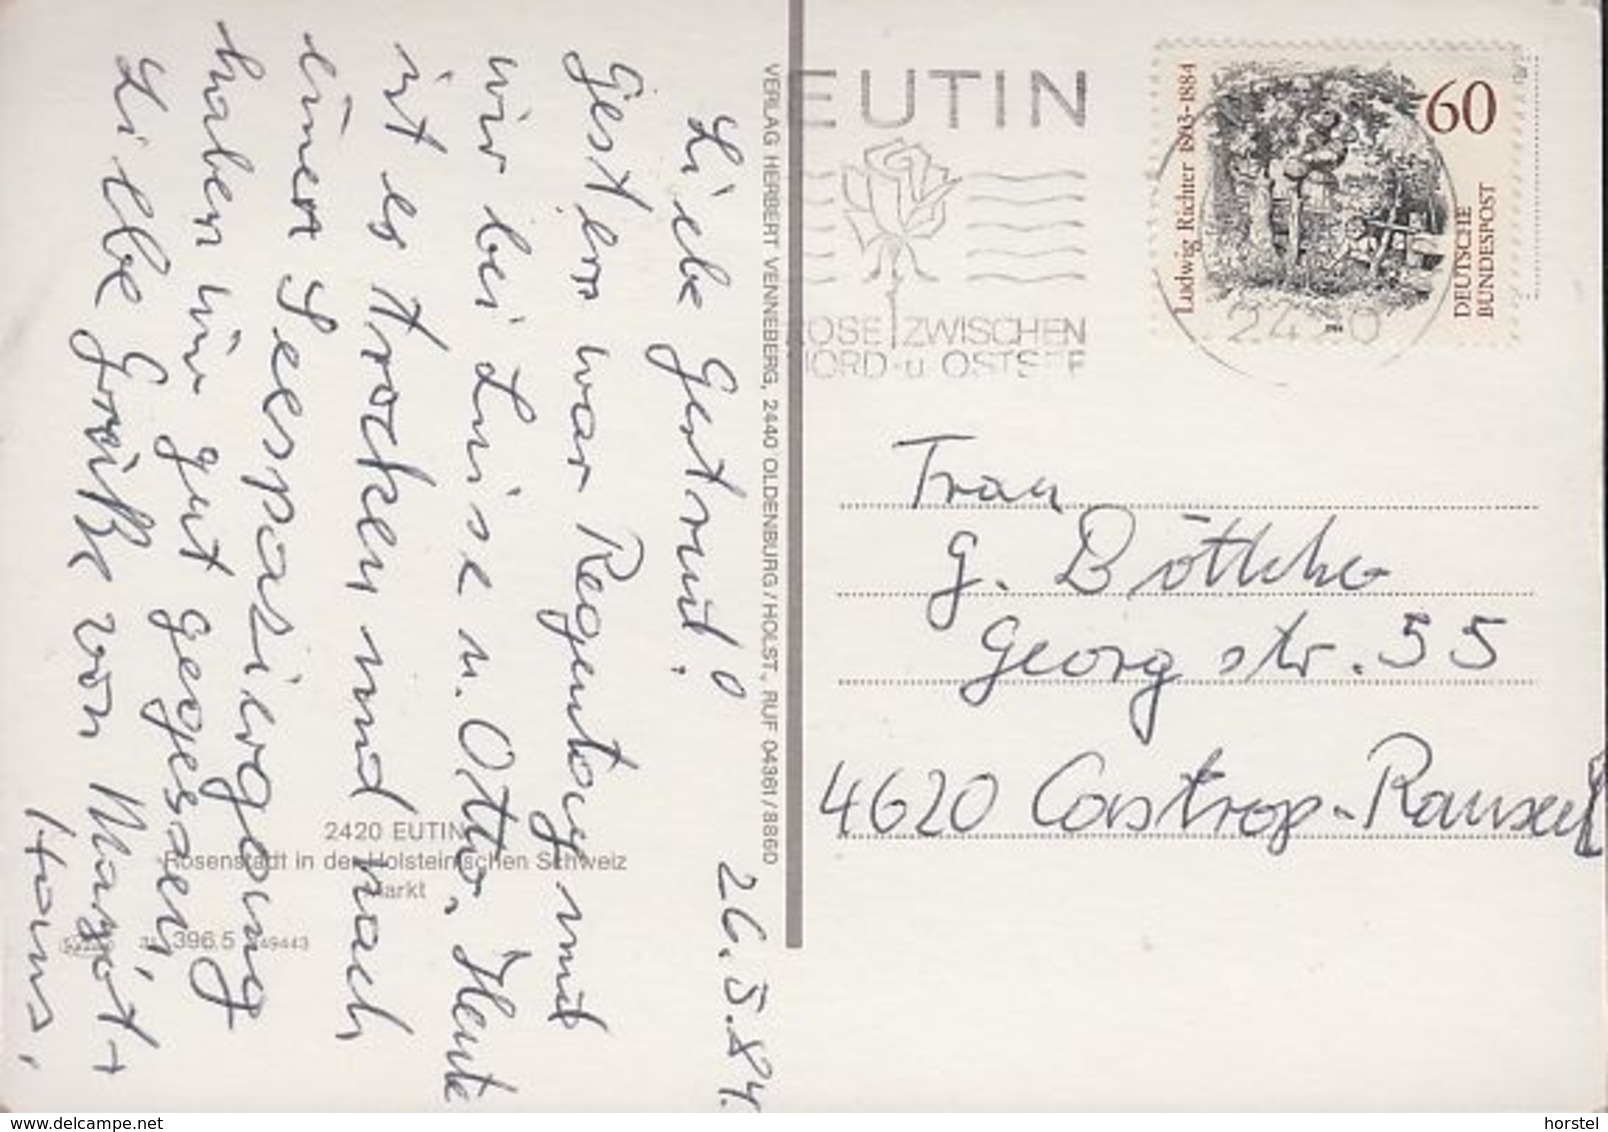 26.5.84.
Liebe Gertrud!
Gestern war Regentag und
wir bei Luise u. Otto. Heute
ist es trocken und nach
einem Seespaziergang
haben wir gut gegessen,
Liebe Grüße von Margot +
Hans.
VERLAG HERBERT VENNEBERG, 2440 OLDENBURG/HOLST., RUF 04361/8860
2420 EUTIN
Rosenstadt in der Holsteinischen Schweiz
Markt
396.5 49443
EUTIN
ROSE ZWISCHEN
NORD-u. OSTSEE
2420
Ludwig Richter 1803-1884
60
DEUTSCHE
BUNDESPOST
Frau
G. Böttcher
Georgstr. 55
4620 Castrop-Rauxel
www.delcampe.net
horstel